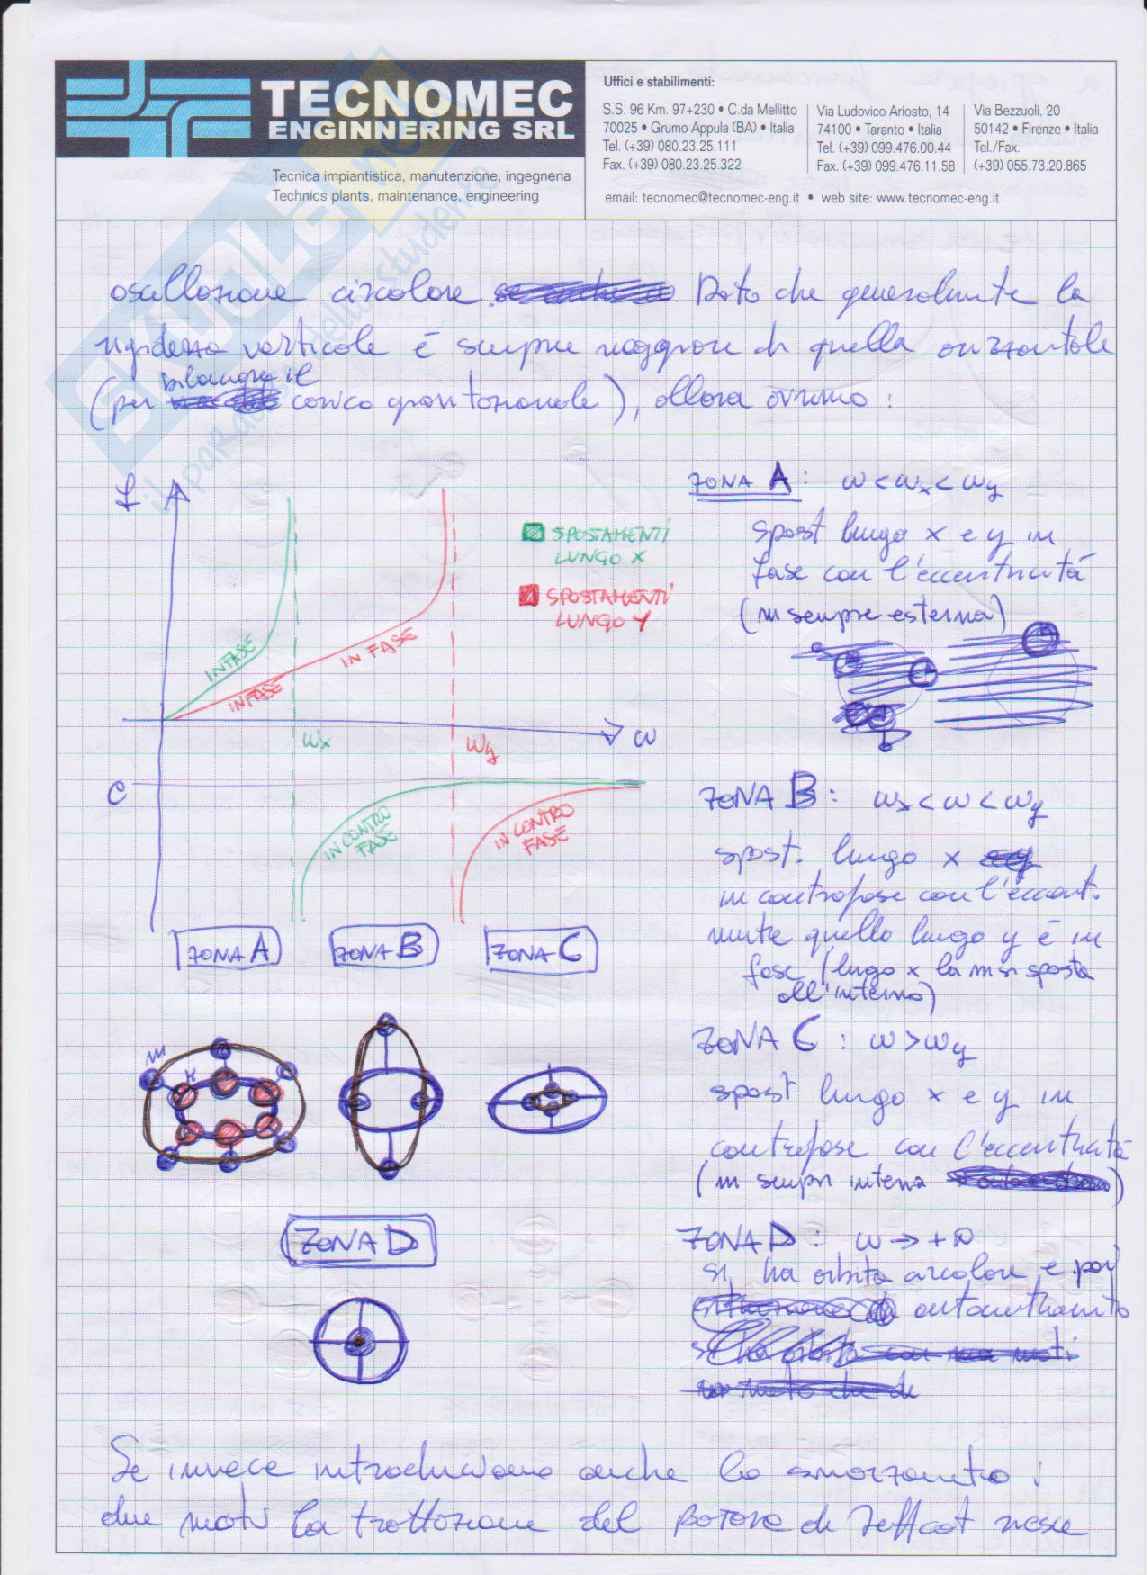 TECNOMEC
ENGINNERING SRL
Tecnica impiantistica, manutenzione, ingegneria
Technics plants, maintenance, engineering
Uffici e stabilimenti:
S.S. 96 Km. 97+230 • C.da Mellitto
70025 • Grumo Appula (BA) • Italia
Tel. (+39) 080.23.25.111
Fax. (+39) 080.23.25.322
Via Ludovico Ariosto, 14
74100 • Taranto • Italia
Tel. (+39) 099.476.00.44
Fax. (+39) 099.476.11.58
Via Bezzuoli, 20
50142 • Firenze • Italia
Tel./Fax.
(+39) 055.73.20.865
email: tecnomec@tecnomec-eng.it • web site: www.tecnomec-eng.it
SKUOLA.net
il paradiso dello studente
oscillazione circolare. Dato che generalmente la
rigidezza verticale è sempre maggiore di quella orizzontale
bilanciare il
(per carico gravitazionale), allora avremo:
f
SPOSTAMENTI
LUNGO X
SPOSTAMENTI
LUNGO Y
IN FASE
IN FASE
IN FASE
ωx
ωy
ω
e
IN CONTRO
FASE
IN CONTRO
FASE
ZONA A
ZONA B
ZONA C
m
K
ZONA D
ZONA A: ω<ωx<ωy
spost lungo x e y in
fase con l'eccentricità
(m sempre esterna)
ZONA B: ωx<ω<ωy
spost. lungo x
in controfase con l'eccent.
mentre quello lungo y è in
fase (lungo x la m si sposta
all'interno)
ZONA C: ω>ωy
spost lungo x e y in
controfase con l'eccentricità
(m sempre interna)
ZONA D: ω→+∞
si ha orbita circolare e poi
autocentramento
Se invece introduciamo anche lo smorzamento i
due moti la trattazione del Rotore di Jeffcot